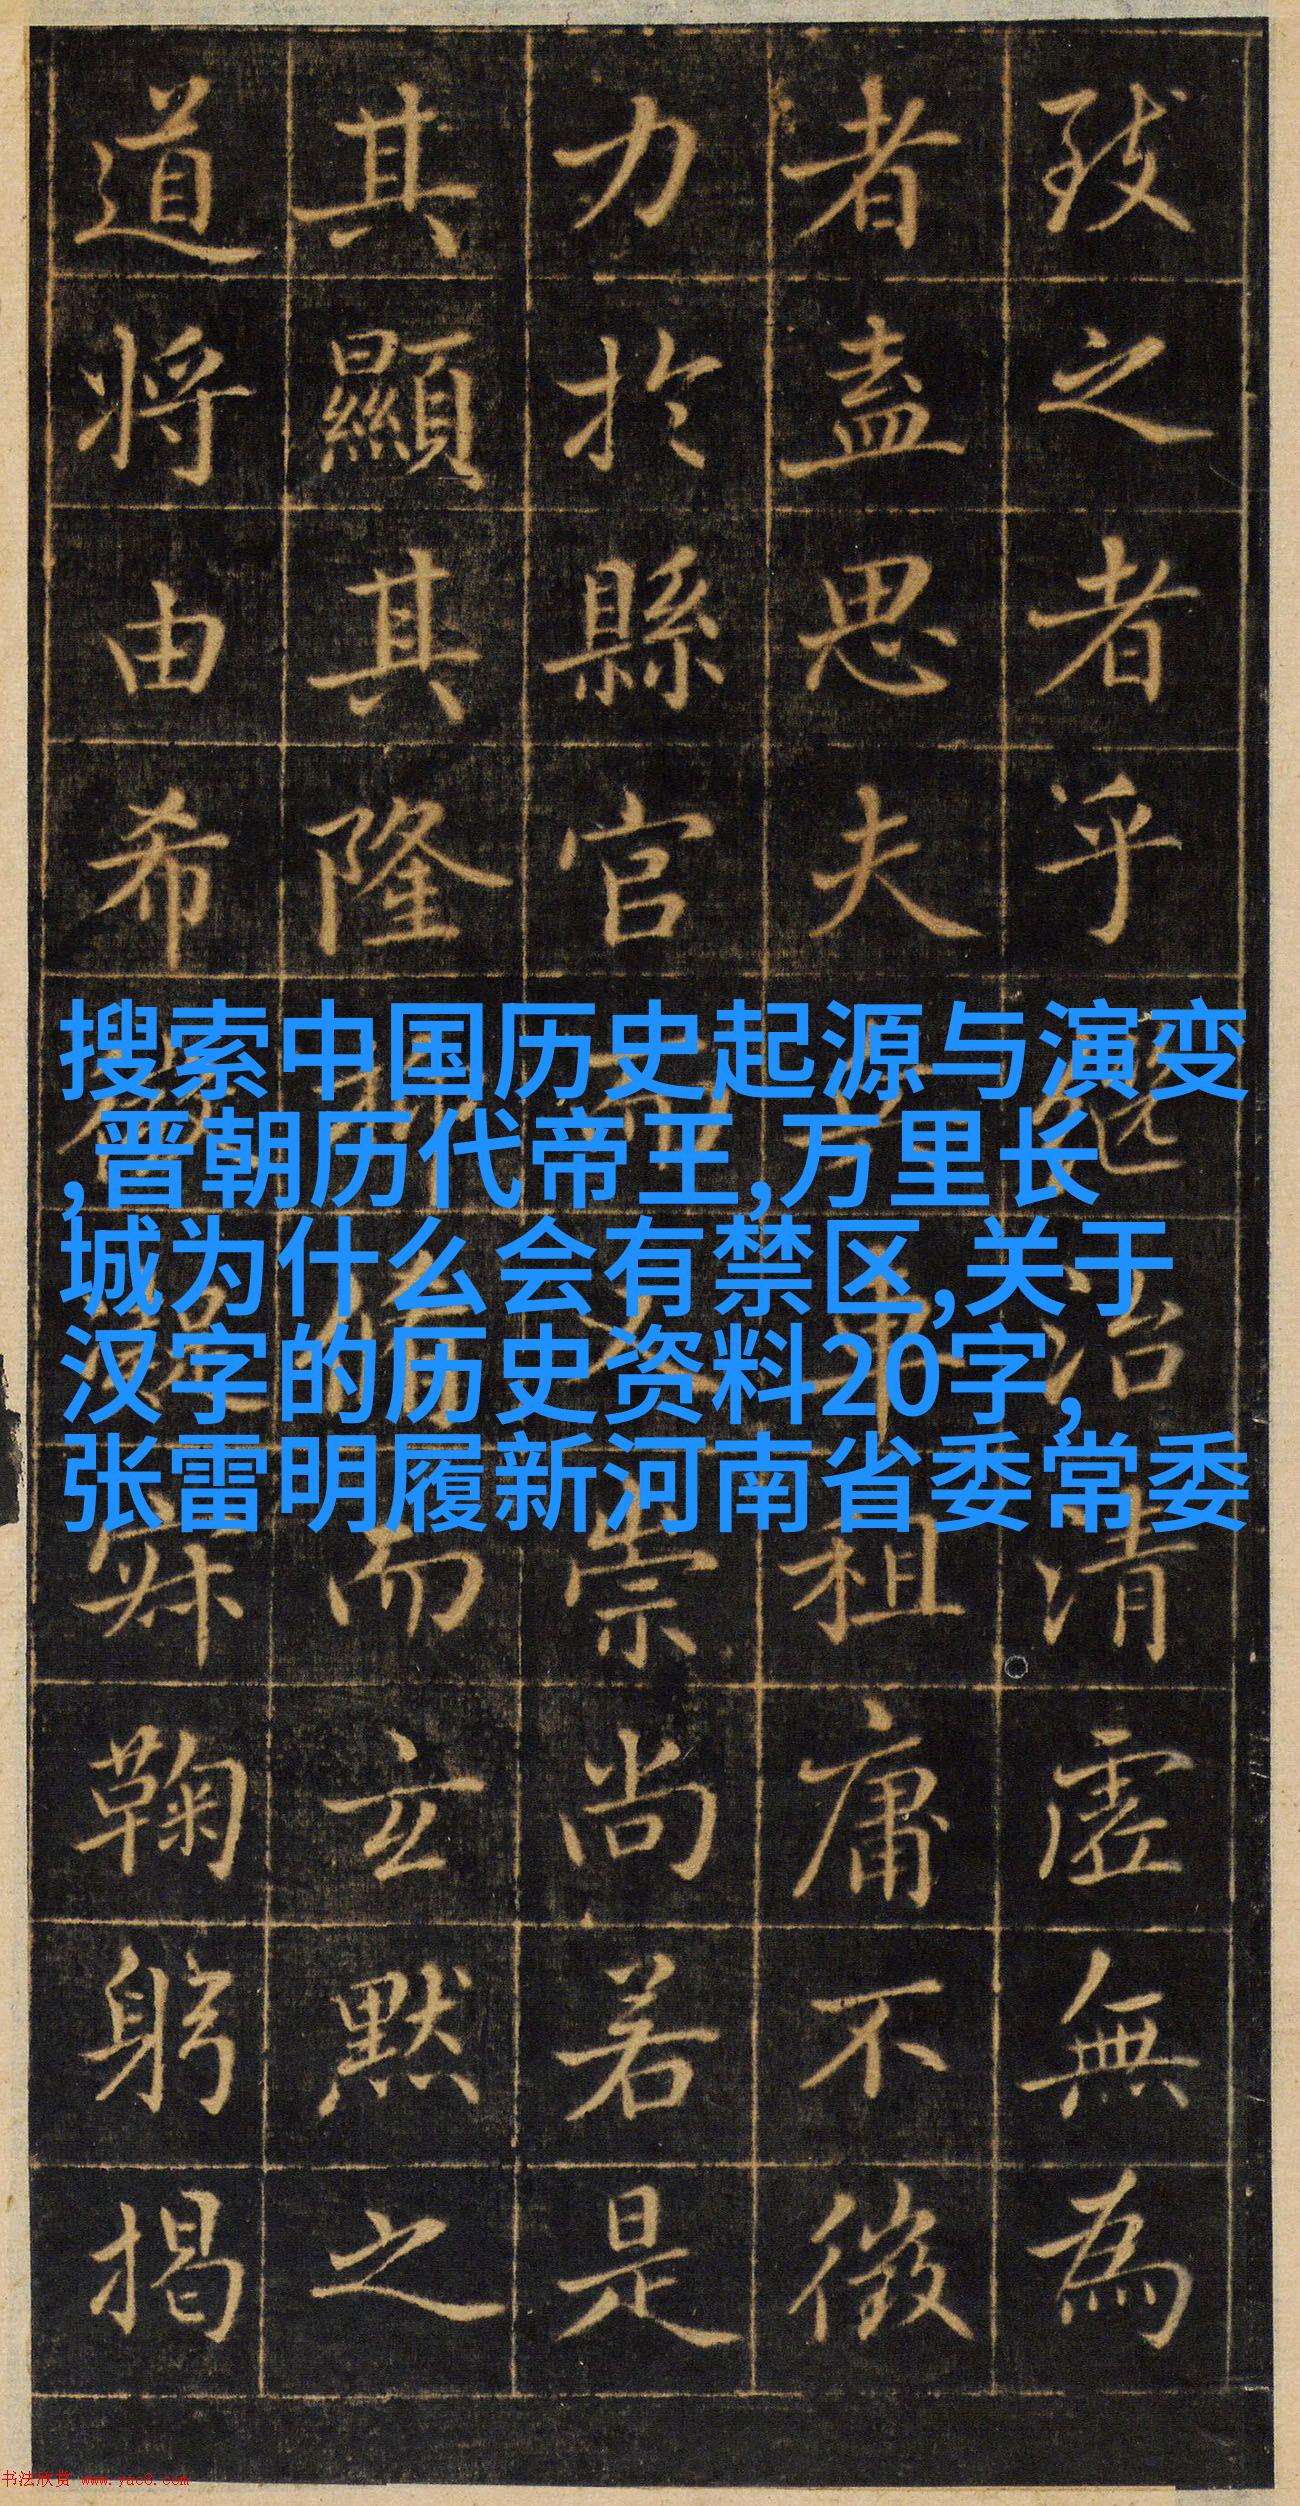 致之者乎治清虛無為
者盍思夫租庸不徵
力於縣官而崇尚若是
其顯其隆而玄默之
道將由希鞠躬揭
搜索中国历史起源与演变
,晋朝历代帝王,万里长
城为什么会有禁区,关于
汉字的历史资料20字,
张雷明履新河南省委常委
书法欣赏 www.yac8.com